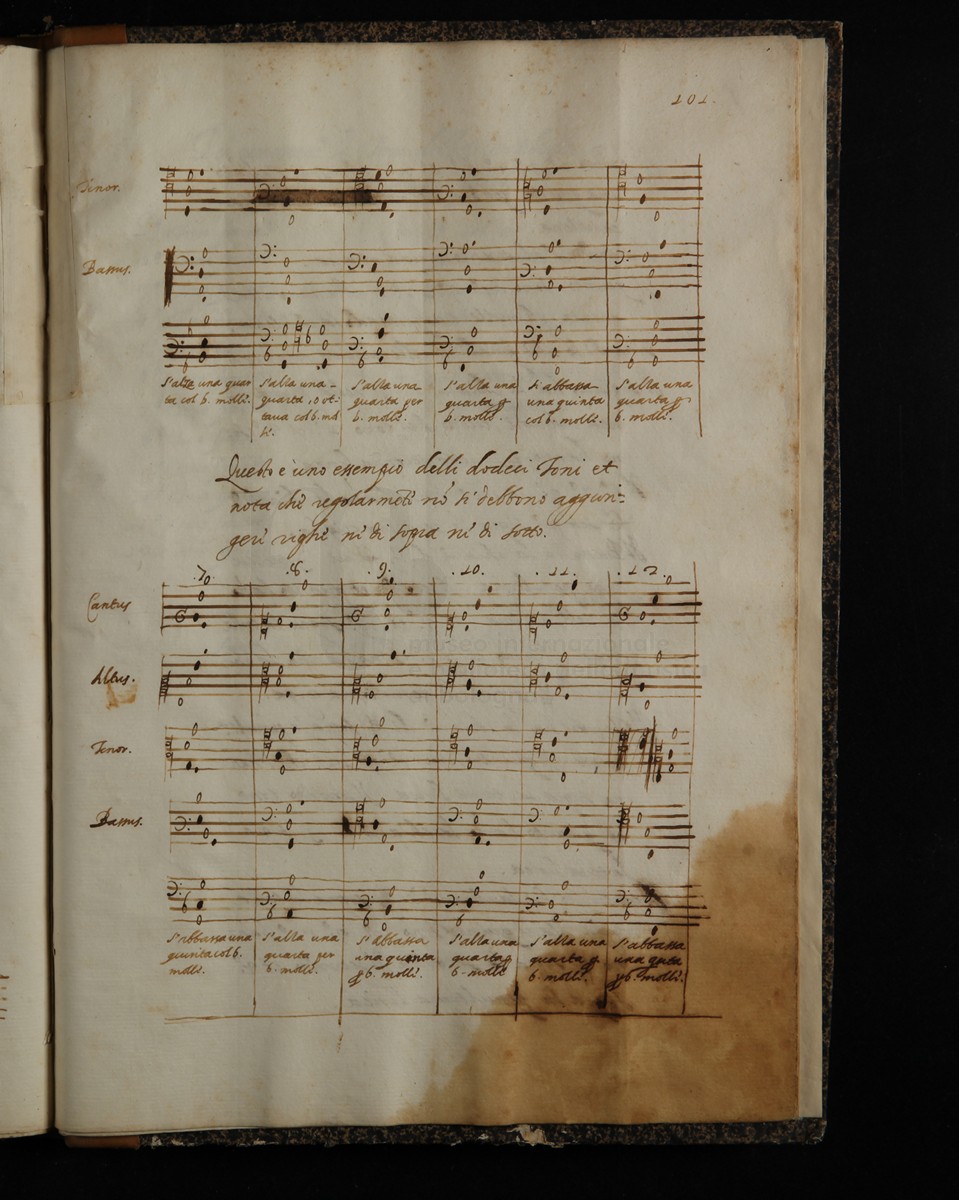 101.
Tenor.
Bassus.
s'alza una quar
ta col b. molle.
s'alza una
quarta, o ot-
tava col b. mol
le.
s'alza una
quarta per
b. molle.
s'alza una
quarta p
b. molle.
si abbassa
una quinta
col b. molle.
s'alza una
quarta p
b. molle.
Questo e uno essempio delli dodeci Toni et
nota che regolarmēte nō si debbono aggiun-
gere righe ne di sopra ne di sotto.
.7. .8. .9. .10. .11. .12.
Cantus
Altus.
Tenor.
Bassus.
s'abbassa una
quinta col b.
molle.
s'alza una
quarta per
b. molle.
s'abbassa
una quinta
p b. molle.
s'alza una
quarta p
b. molle
s'alza una
quarta p
b. molle.
s'abbassa
una quta
p b. molle.